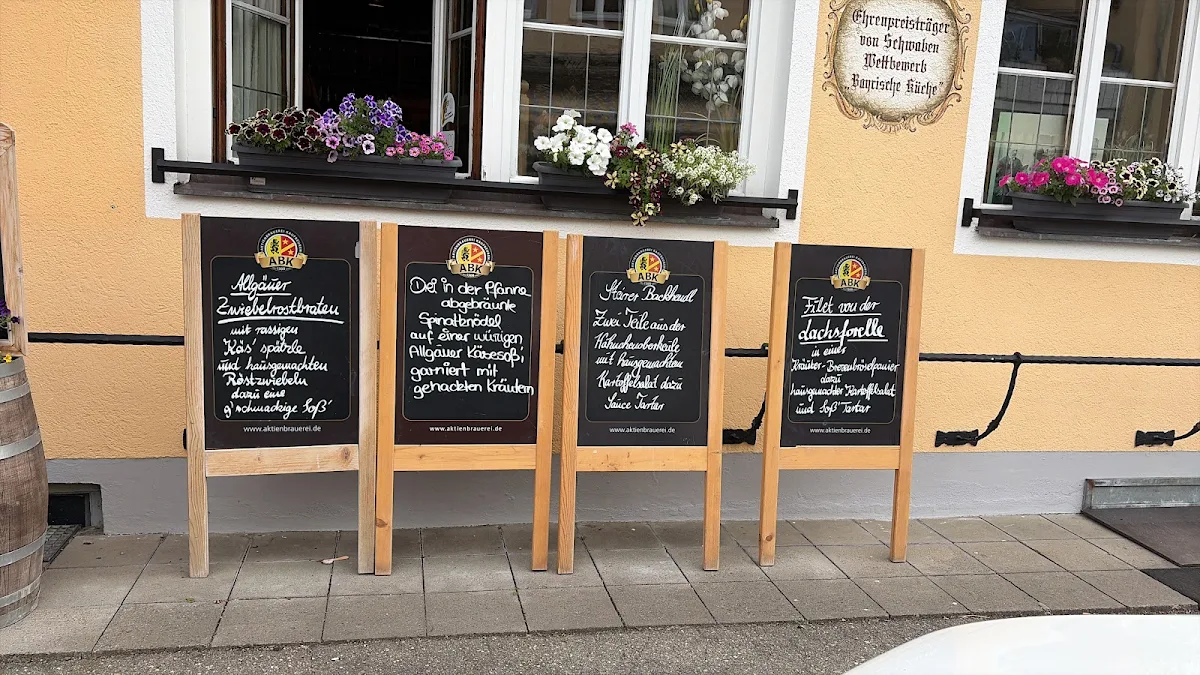 Ehrenpreisträger
von Schwaben
Wettbewerb
"Bayrische Küche"
ABK
Allgäuer
Zwiebelrostbraten
mit rassigen
'Käs' spätzle
und hausgemachten
Röstzwiebeln
dazu eine
g'schmackige Soß'
www.aktienbrauerei.de
ABK
Dei in der Pfanne
abgebräunte
Spinatknödel
auf einer würzigen
Allgäuer Käsesoß',
garniert mit
gehackten Kräutern
www.aktienbrauerei.de
ABK
Steirer Backhendl
Zwei Teile aus der
Hähnchenoberkeule
mit hausgemachten
Kartoffelsalat dazu
Sauce Tartar
www.aktienbrauerei.de
ABK
Filet von der
Lachsforelle
in einer
Kräuter-Brezenbröselpanier
dazu
hausgemachter Kartoffelsalat
und Soß' Tartar
www.aktienbrauerei.de